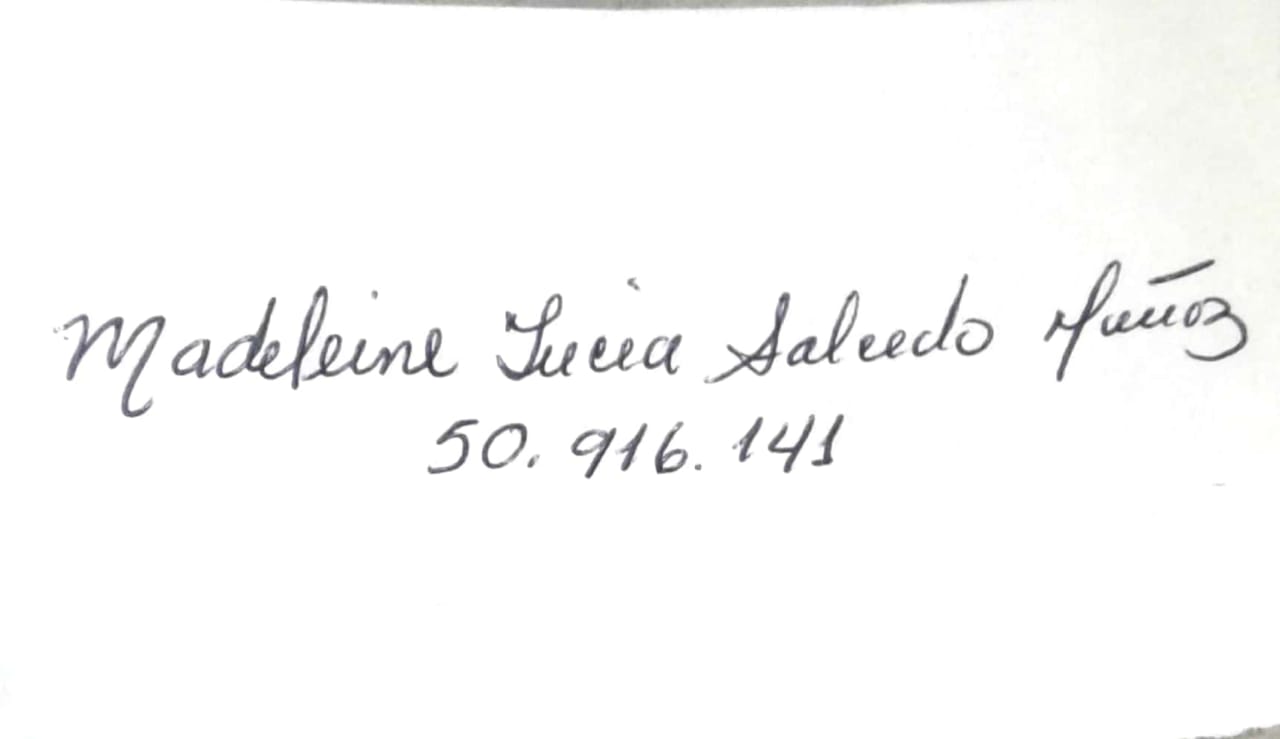 Madeleine Lucia Salcedo Muñoz
50.916.141